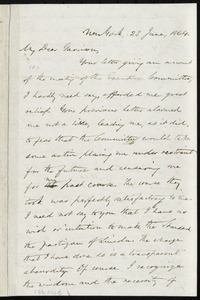 New York, 23 June, 1864.
My Dear Garrison,
Your letter giving an account
of the meeting of the Executive Committee,
I hardly need say, afforded me great
relief. Your previous letter alarmed
me not a little, leading me, as it did,
to fear that the Committee would take
some action placing me under restraint
for the future and censuring me
for the past course. The course they
took was perfectly satisfactory to me.
I need not say to you that I have no
wish or intention to make the Standard
the partizan of Lincoln. The charge
that I have done so is a transparent
absurdity. Of course I recognize
the wisdom and the necessity of